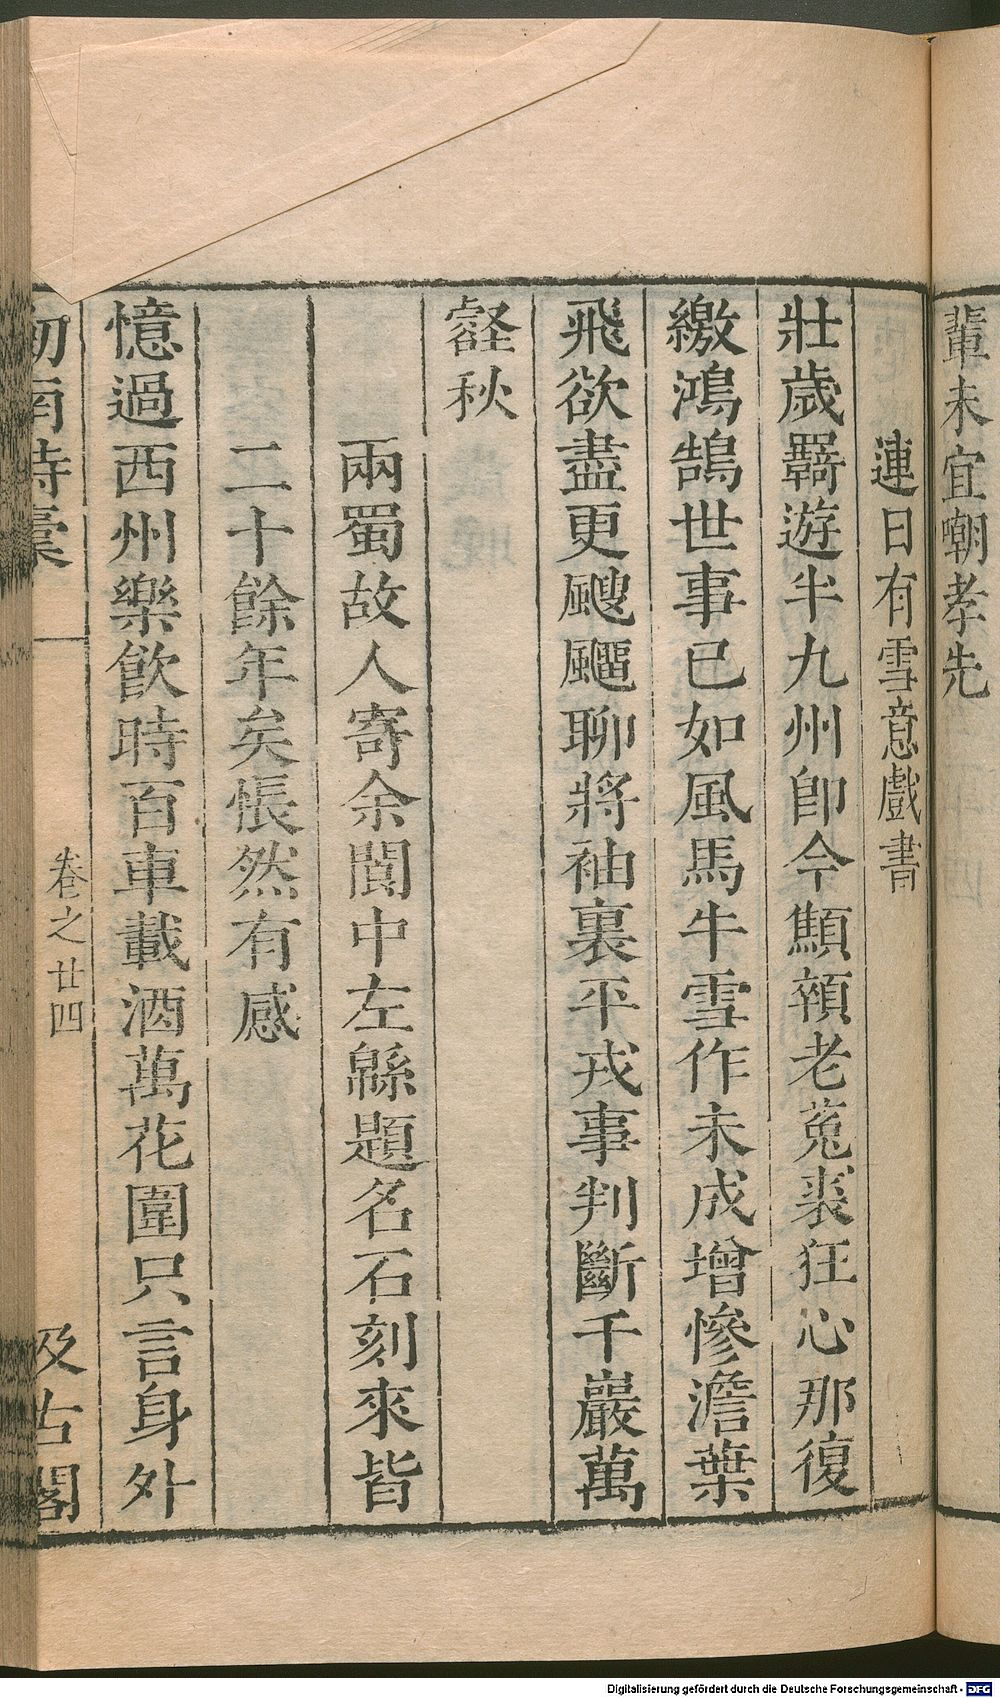 輩未宜嘲孝先
連日有雪意戲書
壯歲羇遊半九州卽今顦顇老菟裘狂心那復
繳鴻鵠世事已如風馬牛雪作未成增慘澹葉
飛欲盡更颼飀聊將袖裏平戎事判斷千巖萬
壑秋
兩蜀故人寄余閬中左緜題名石刻來皆
二十餘年矣悵然有感
憶過西州樂飲時百車載酒萬花圍只言身外
劒南詩稾
卷之廿四
汲古閣
Digitalisierung gefördert durch die Deutsche Forschungsgemeinschaft - DFG